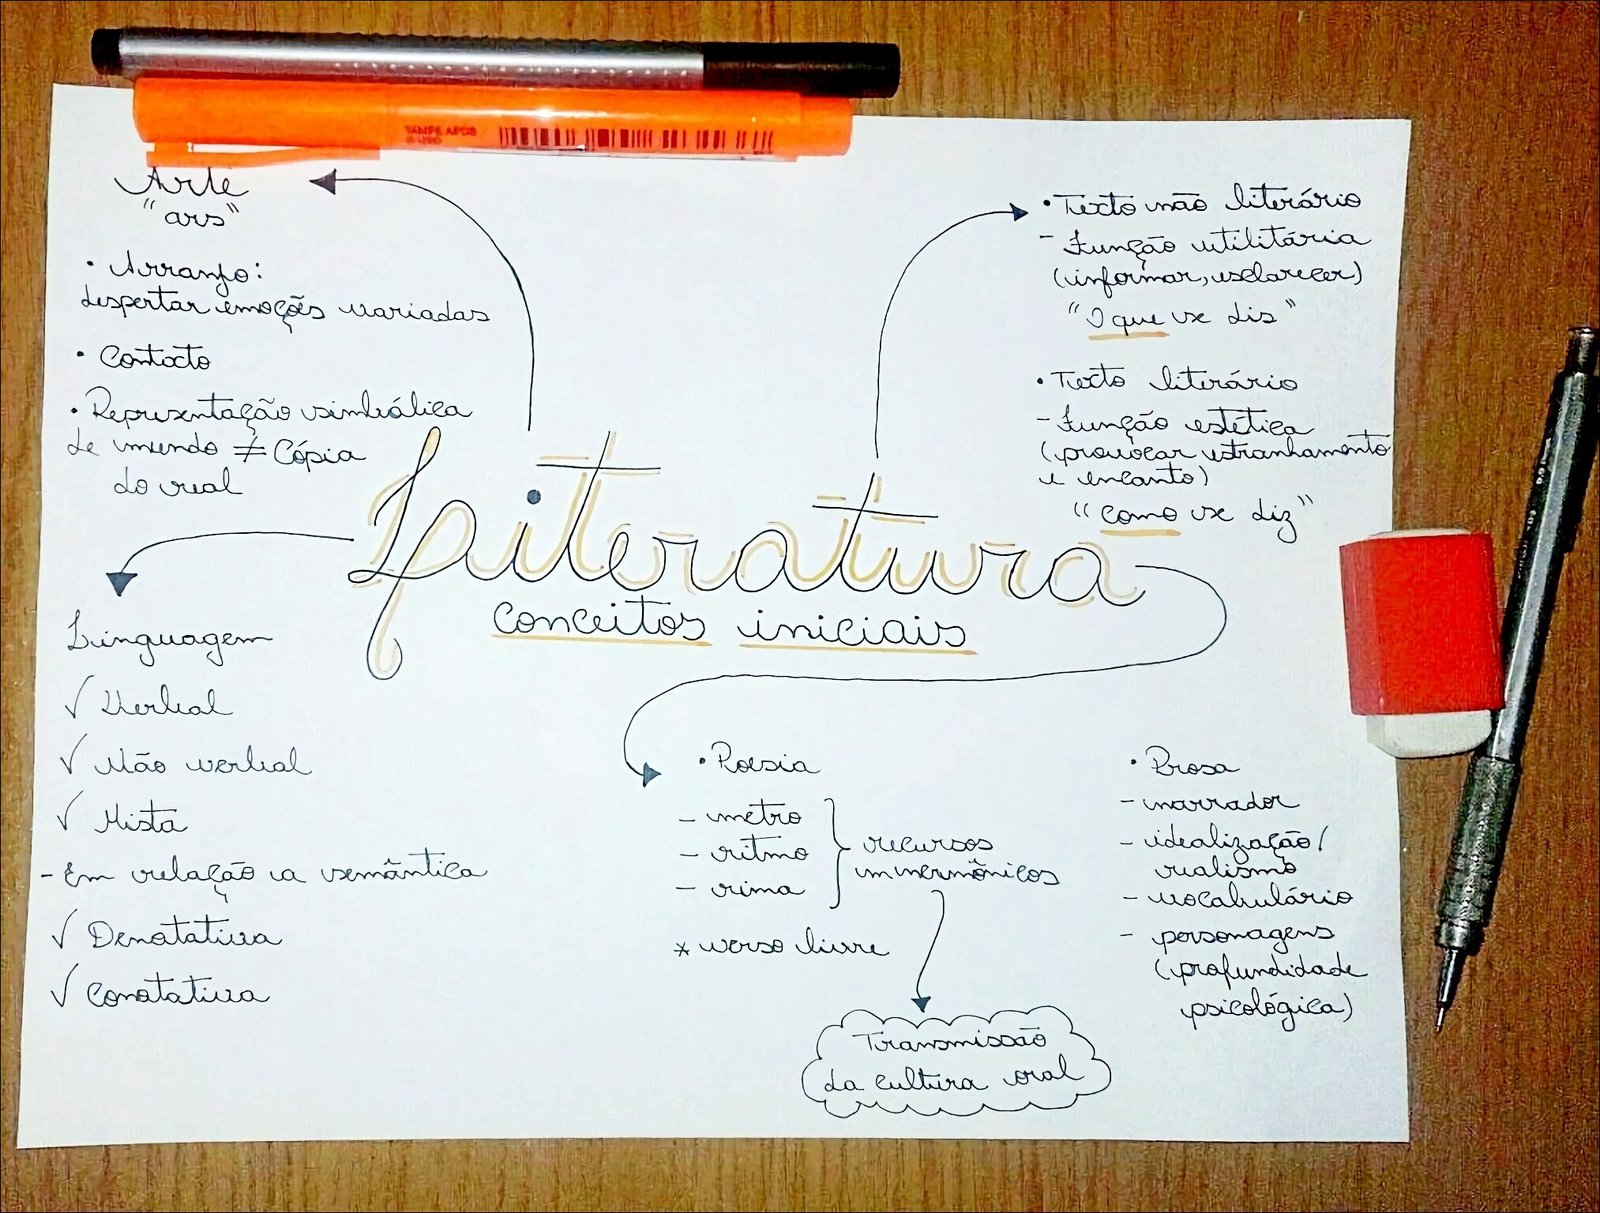 Arte
"ars"
• Arranjo:
despertar emoções variadas
• Contexto
• Representação simbólica
de mundo ≠ Cópia
do real
• Texto não literário
- Função utilitária
(informar, esclarecer)
"O que se diz"
• Texto literário
- Função estética
(provocar estranhamento
e encanto)
"Como se diz"
Literatura
conceitos iniciais
Linguagem
✓ Verbal
✓ Não verbal
✓ Mista
- Em relação a semântica
✓ Denotativa
✓ Conotativa
• Poesia
- metro
- ritmo
- rima
recursos
mnemônicos
* verso livre
Transmissão
da cultura oral
• Prosa
- narrador
- idealização/
realismo
- vocabulário
- personagens
(profundidade
psicológica)